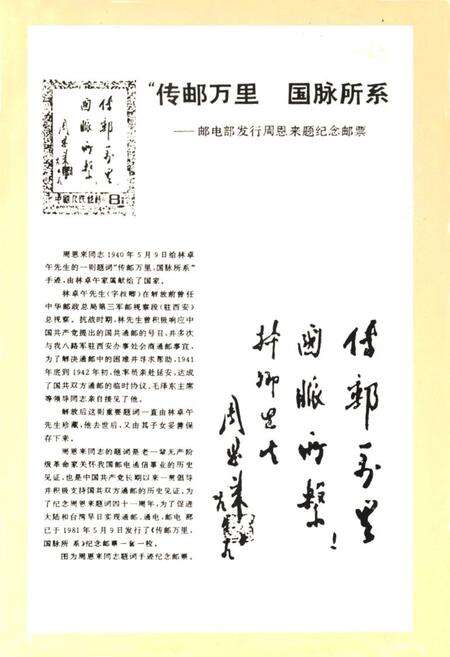 “传邮万里　国脉所系
——邮电部发行周恩来题纪念邮票
传邮万里
国脉所系
周恩来
中国人民邮政
8分
周恩来同志1940年5月9日给林卓
午先生的一则题词“传邮万里，国脉所系”
手迹，由林卓午家属献给了国家。
林卓午先生（字拉卿）在解放前曾任
中华邮政总局第三军邮视察段（驻西安）
总视察。抗战时期，林先生曾积极响应中
国共产党提出的国共通邮的号召，并多次
与我八路军驻西安办事处会商通邮事宜，
为了解决通邮中的困难并寻求帮助，1941
年底到1942年初，他率员亲赴延安，达成
了国共双方通邮的临时协议，毛泽东主席
等领导同志亲自接见了他。
解放后这则重要题词一直由林卓午
先生珍藏，他去世后，又由其子女妥善保
存下来。
周恩来同志的题词是老一辈无产阶
级革命家关怀我国邮电通信事业的历史
见证，也是中国共产党长期以来一贯倡导
并积极支持国共双方通邮的历史见证。为
了纪念周恩来题词四十一周年，为了促进
大陆和台湾早日实现通邮、通电，邮电 部
已于1981年5月9日发行了《传邮万里，
国脉所 系》纪念邮票一套一枚。
图为周恩来同志题词手迹纪念邮票。
传邮万里
国脉所繫！
卿先生
周恩来